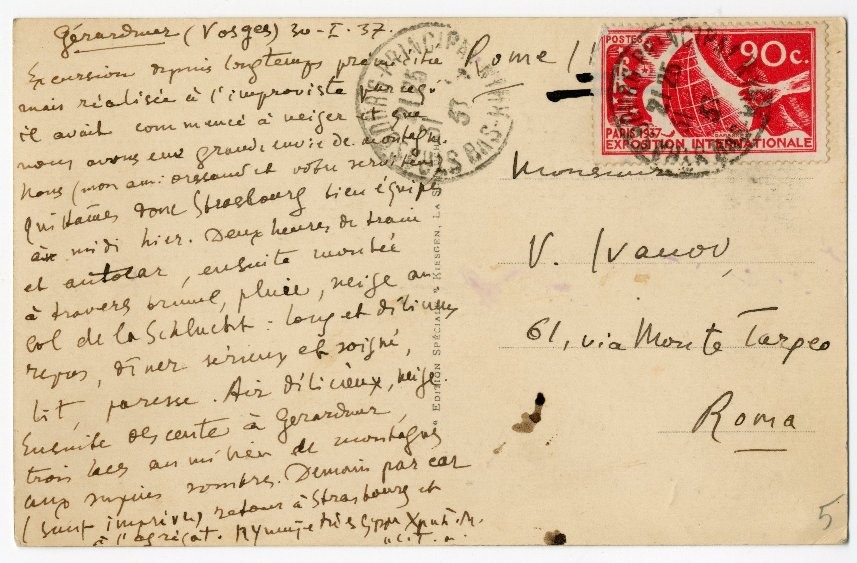 Gérardmer (Vosges) 30-I.37.
Excursion depuis longtemps préméditée
mais réalisée à l'improviste parce qu'
il avait commencé à neiger et que
nous avons eu grande envie de montagne.
Nous (mon ami et votre serviteur)
quittâmes donc Strasbourg bien équipés
à midi hier. Deux heures de train
et autocar, ensuite montée
à travers brume, pluie, neige au
Col de la Schlucht : long et délicieux
repos, dîner sérieux et soigné,
lit, paresse. Air délicieux, neige.
Ensuite descente à Gerardmer,
trois lacs au milieu de montagnes
aux sapins sombres. Demain par car
(sauf imprévu) retour à Strasbourg et
à l'agrégat.
EDITION SPÉCIALE KIESGEN, LA SCHLUCHT
Rome
POSTES
90 c.
PARIS 1937
EXPOSITION INTERNATIONALE
Monsieur
V. Ivanov,
61, via Monte Tarpeo
Roma
5